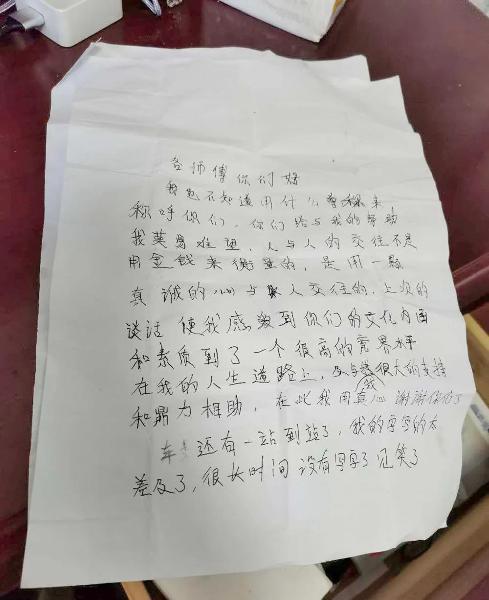 各师傅你们好
我也不知道用什么尊称来
称呼你们，你们给与我的帮助
我莫名难望，人与人的交往不是
用金钱来衡量的，是用一颗
真诚的心与人交往的，上次的
谈话使我感受到你们的文化内涵
和素质到了一个很高的竟界水平
在我的人生道路上，给与我很大的支持
和鼎力相助，在此我用真心谢谢你们了
车还有一站到站了，我的字写的太
差及了，很长时间没有写字了见笑了